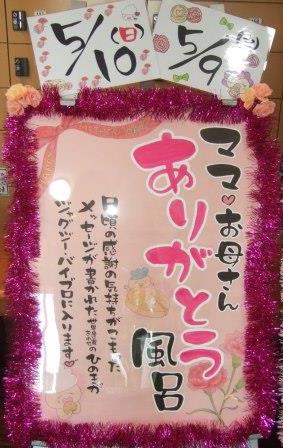 5/9(土)
5/10(日)
ママ♡お母さん
ありがとう
風呂
日頃の感謝の気持ちがこもった
メッセージが書かれたひのきが
ジャグジー・バイブロに入ります♡